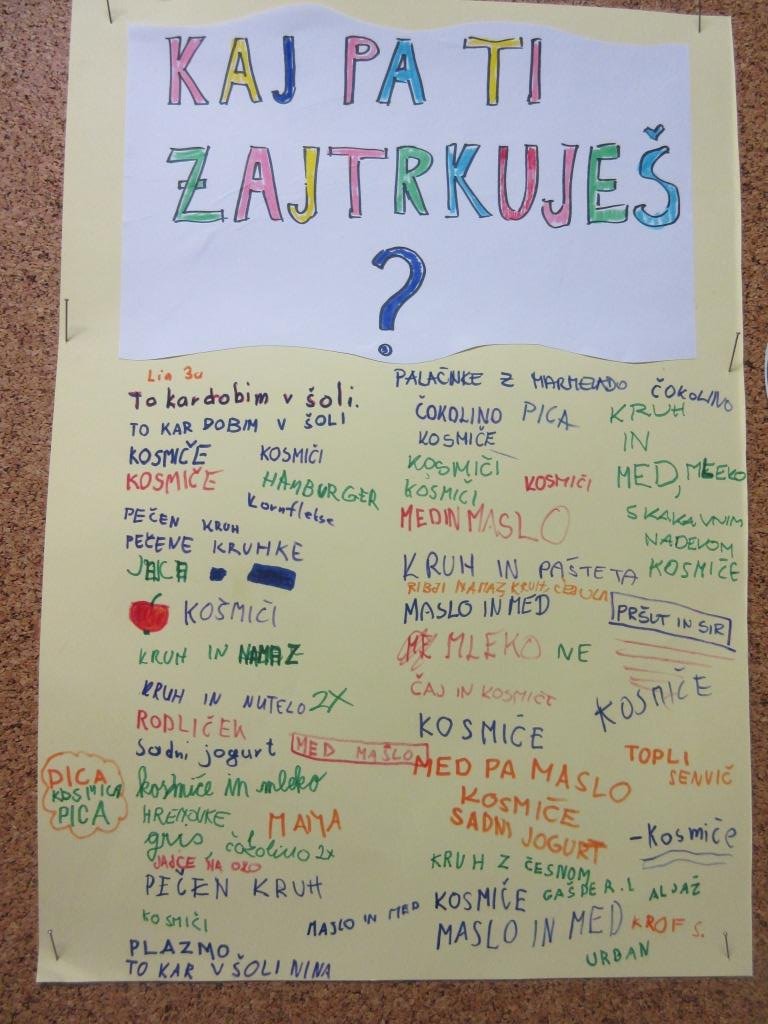 KAJ PA TI
ZAJTRKUJEŠ
?
Lia 3u
To kar dobim v šoli.
TO KAR DOBIM V ŠOLI
KOSMIČE KOSMIČI
KOSMIČE HAMBURGER
Kornflekse
PEČEN KRUH
PEČENE KRUHKE
JAJCA
KOŠMIČI
KRUH IN NAMAZ
KRUH IN NUTELO 2X
RODLIČEK
Sadni jogurt MED MAŠLO
PICA
KOSMIČA
PICA
kosmiče in mleko
HRENOVKE MAMA
gris, čokolino 2x
JAJČE NA OKO
PEČEN KRUH
KOSMIČI
MASLO IN MED
PLAZMO
TO KAR V ŠOLI NINA
PALAČINKE Z MARMELADO ČOKOLINO
ČOKOLINO PICA KRUH
KOSMIČE IN
KOSMIČI KOSMIČI MED, MLEKO
KOSMIČI
MED IN MASLO S KAKAVNIM
NADEVOM
KRUH IN PAŠTETA KOSMIČE
RIBJI NAMAZ KRUH, ČEBULA
MASLO IN MED PRŠUT IN SIR
MLEKO NE
ČAJ IN KOSMIČE KOSMIČE
KOSMIČE
MED PA MASLO TOPLI
SENVIČ
KOSMIČE
SADNI JOGURT -Kosmiče
KRUH Z ČESNOM
KOSMIČE GAŠPER.L ALJAŽ
MASLO IN MED KROF S.
URBAN